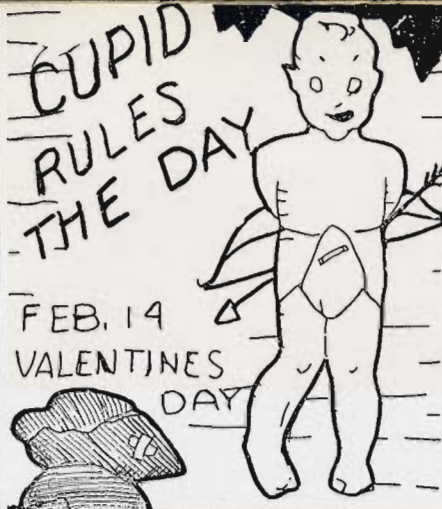 CUPID
RULES
THE DAY
FEB. 14
VALENTINES
DAY